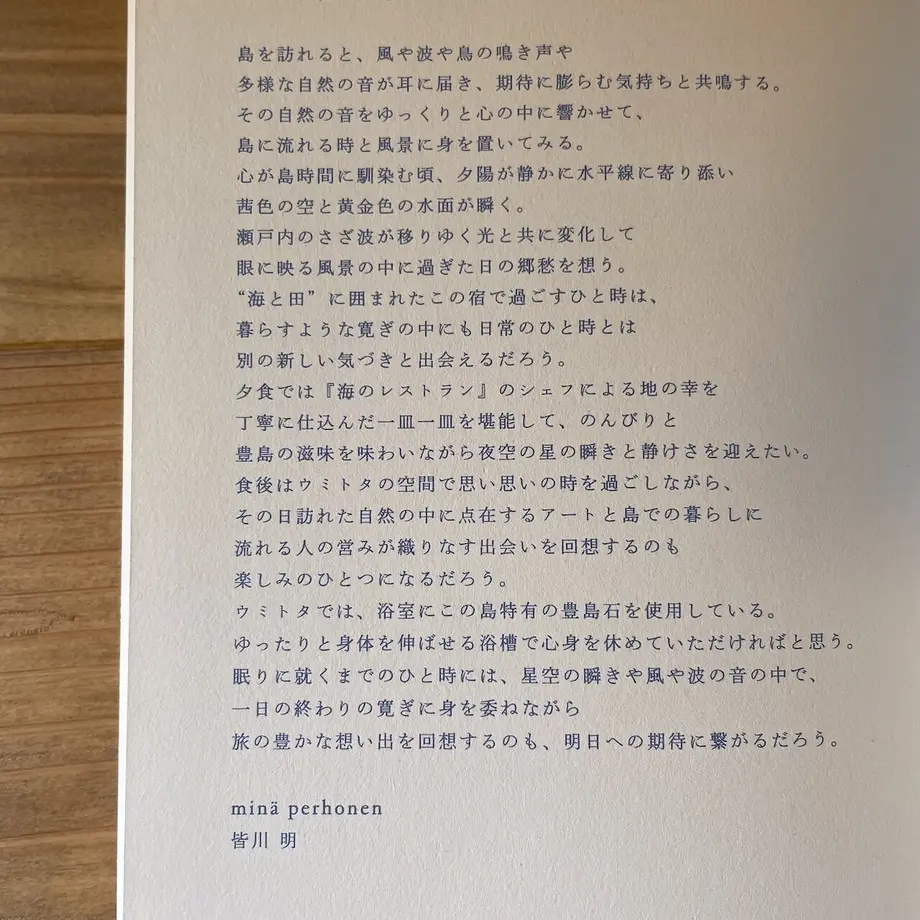 島を訪れると、風や波や鳥の鳴き声や
多様な自然の音が耳に届き、期待に膨らむ気持ちと共鳴する。
その自然の音をゆっくりと心の中に響かせて、
島に流れる時と風景に身を置いてみる。
心が島時間に馴染む頃、夕陽が静かに水平線に寄り添い
茜色の空と黄金色の水面が瞬く。
瀬戸内のさざ波が移りゆく光と共に変化して
眼に映る風景の中に過ぎた日の郷愁を想う。
“海と田”に囲まれたこの宿で過ごすひと時は、
暮らすような寛ぎの中にも日常のひと時とは
別の新しい気づきと出会えるだろう。
夕食では『海のレストラン』のシェフによる地の幸を
丁寧に仕込んだ一皿一皿を堪能して、のんびりと
豊島の滋味を味わいながら夜空の星の瞬きと静けさを迎えたい。
食後はウミトタの空間で思い思いの時を過ごしながら、
その日訪れた自然の中に点在するアートと島での暮らしに
流れる人の営みが織りなす出会いを回想するのも
楽しみのひとつになるだろう。
ウミトタでは、浴室にこの島特有の豊島石を使用している。
ゆったりと身体を伸ばせる浴槽で心身を休めていただければと思う。
眠りに就くまでのひと時には、星空の瞬きや風や波の音の中で、
一日の終わりの寛ぎに身を委ねながら
旅の豊かな想い出を回想するのも、明日への期待に繋がるだろう。
minä perhonen
皆川 明